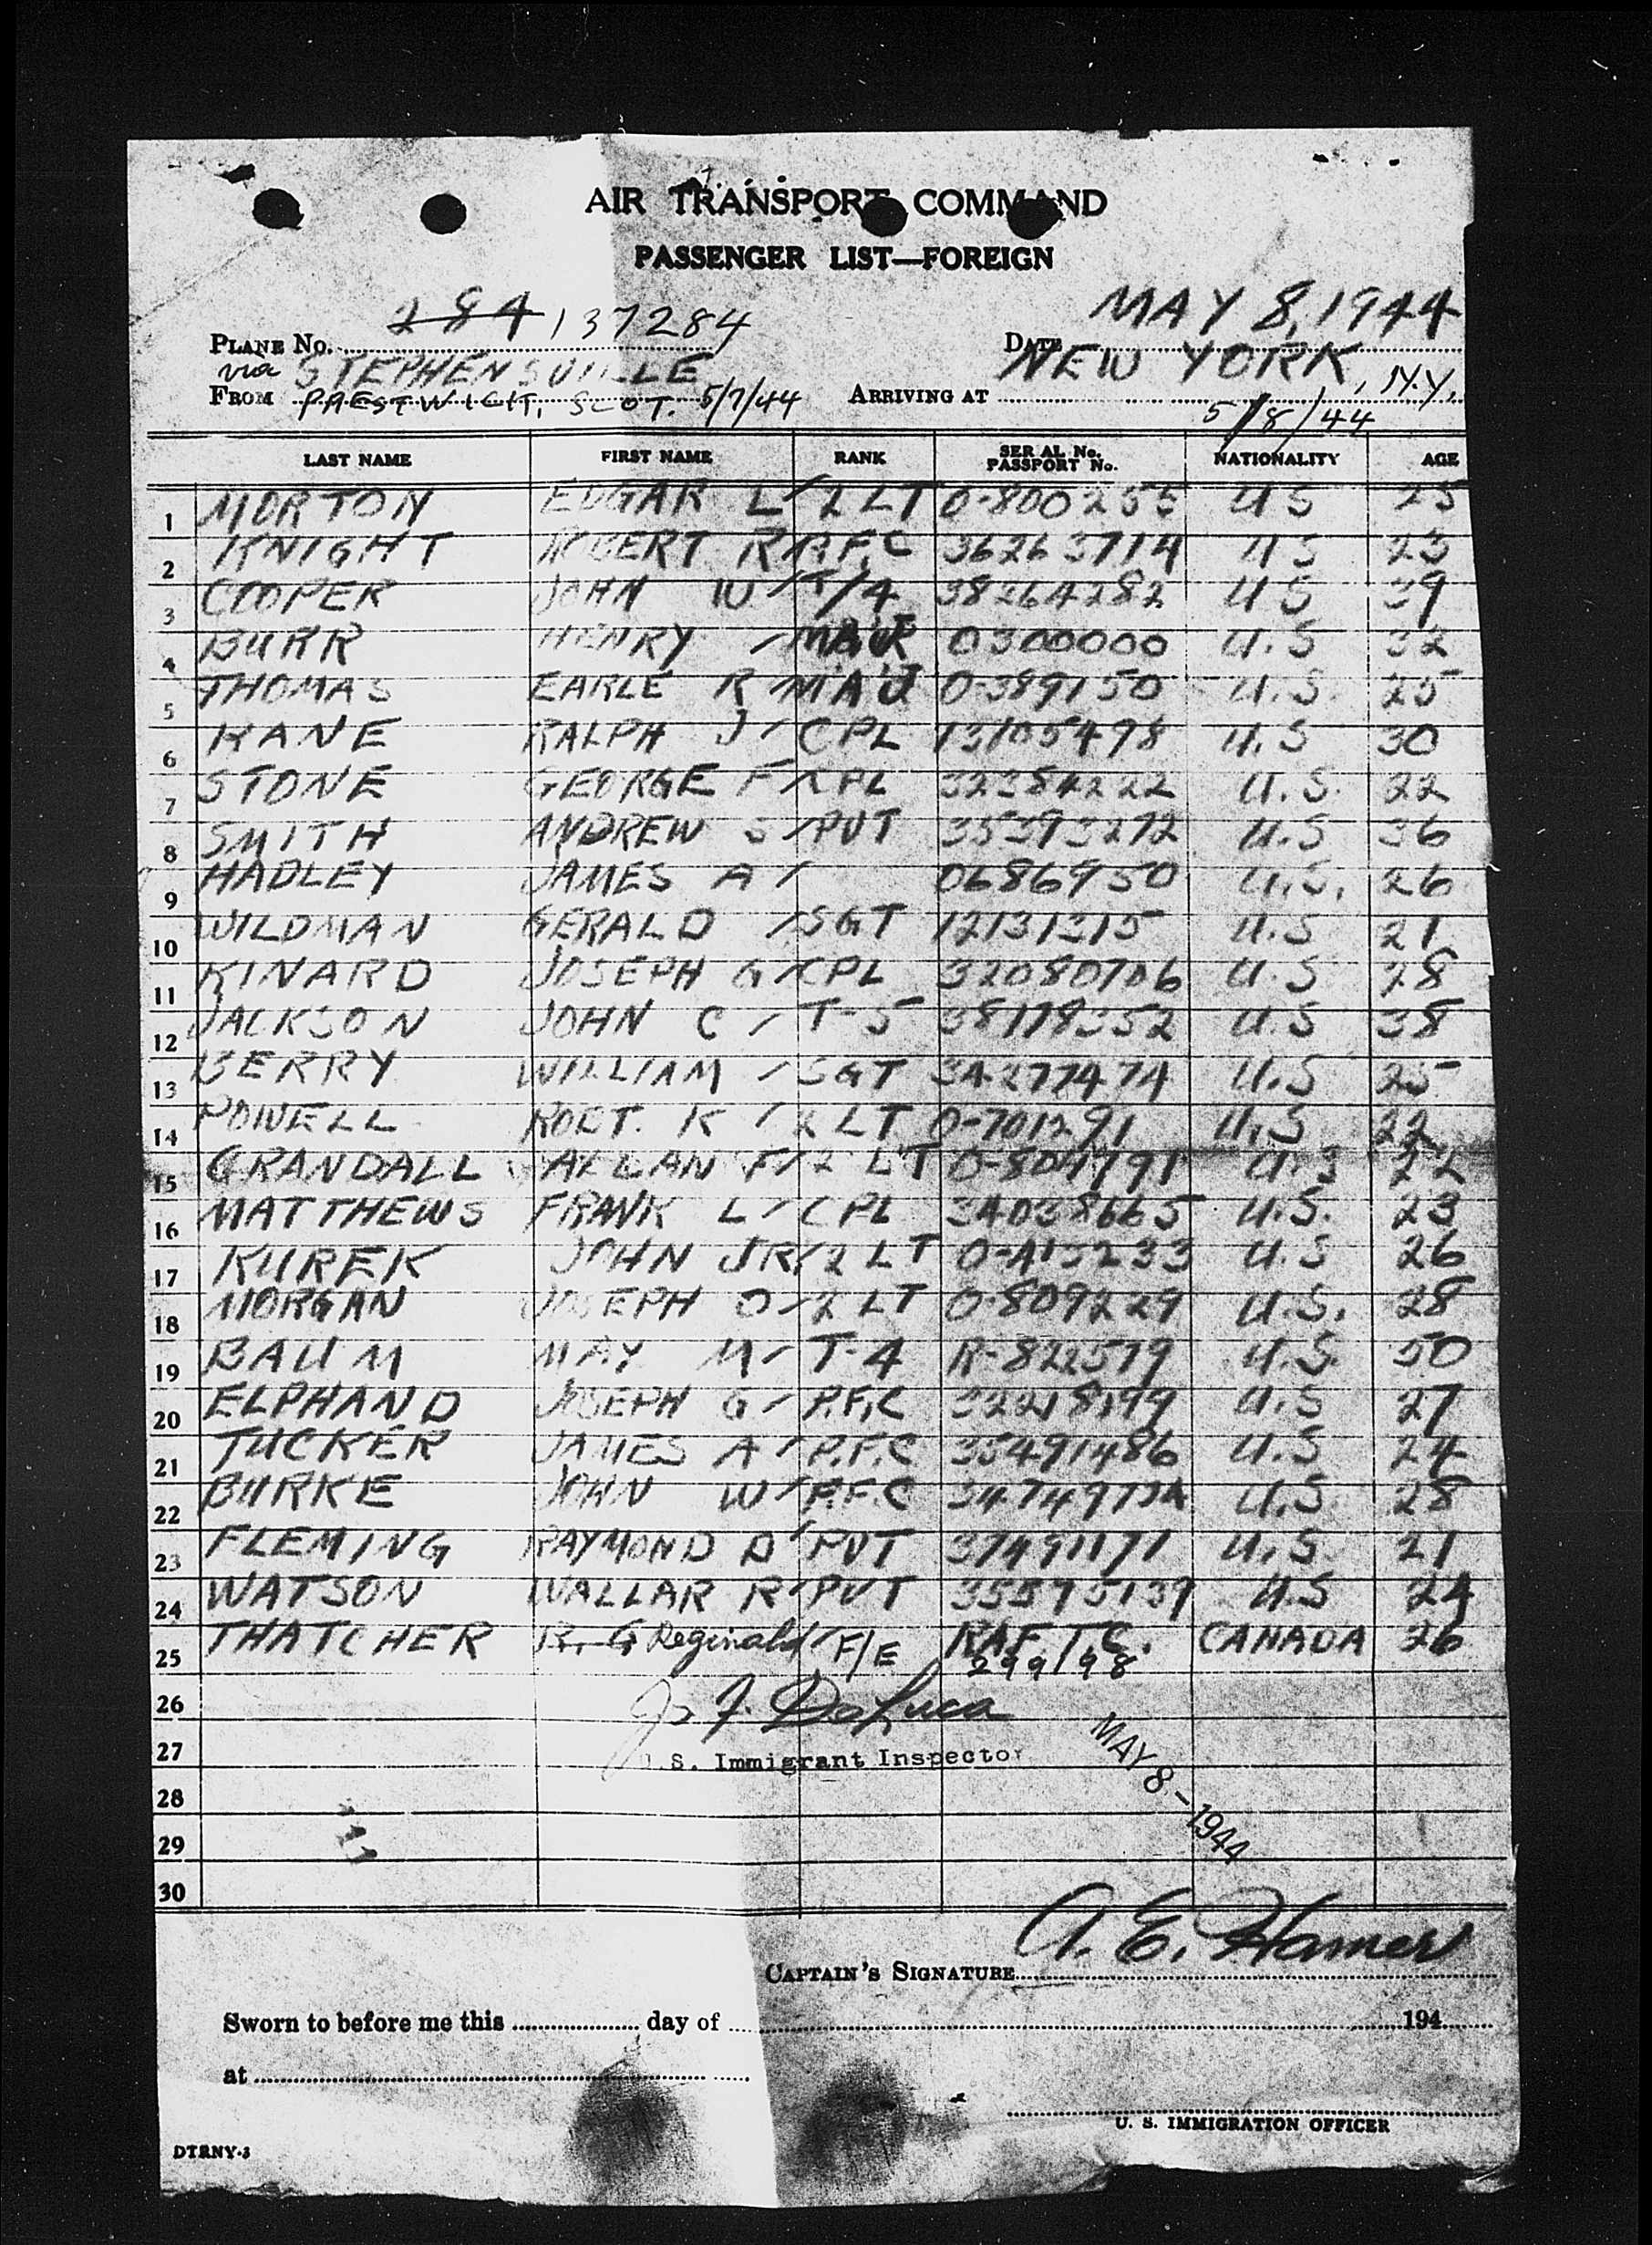 AIR TRANSPORT COMMAND
PASSENGER LIST—FOREIGN
PLANE No. 284 137284
DATE MAY 8, 1944
via STEPHENSVILLE
FROM PRESTWICK, SCOT. 5/7/44
ARRIVING AT NEW YORK, N.Y.
5/8/44
LAST NAME FIRST NAME RANK SERIAL No. PASSPORT No. NATIONALITY AGE
1 MORTON EDGAR L 2 LT O-800255 US 25
2 KNIGHT ROBERT R P.F.C 36263714 US 23
3 COOPER JOHN W T/4 38264282 US 39
4 BURR HENRY MAJ 0300000 U.S 32
5 THOMAS EARLE R MAJ O-389150 U.S. 25
6 KANE RALPH J CPL 13105498 U.S 30
7 STONE GEORGE F CPL 32384222 U.S. 22
8 SMITH ANDREW S PVT 35393272 U.S 36
9 HADLEY JAMES A 0686950 U.S. 26
10 WILDMAN GERALD SGT 12131315 U.S 21
11 KINARD JOSEPH G CPL 32080706 U.S 28
12 JACKSON JOHN C T-5 38178352 U.S 38
13 BERRY WILLIAM SGT 34277474 U.S 25
14 POWELL ROBT. K 2 LT O-701291 U.S 22
15 GRANDALL ALLAN F 2 LT U.S 22
16 MATTHEWS FRANK L CPL 34038665 U.S. 23
17 KUREK JOHN JR 2 LT O-415233 U.S 26
18 MORGAN JOSEPH O 2 LT O-809229 U.S. 28
19 BAUM MAY M T-4 R-822579 U.S. 50
20 ELPHAND JOSEPH G P.F.C 32218199 U.S 27
21 TUCKER JAMES A P.F.C 35491486 U.S 24
22 BURKE JOHN W P.F.C U.S. 28
23 FLEMING RAYMOND D PVT 37491171 U.S. 21
24 WATSON WALLAR R PVT 35575139 U.S 24
25 THATCHER R. G Reginald F/E R.A.F. T.C. CANADA 26
299198
26 Jo F. DeLuca
27 U.S. Immigrant Inspector
MAY 8-1944
28
29
30
CAPTAIN'S SIGNATURE A. E. Hamer
Sworn to before me this day of 194
at
U. S. IMMIGRATION OFFICER
DTRNY-3